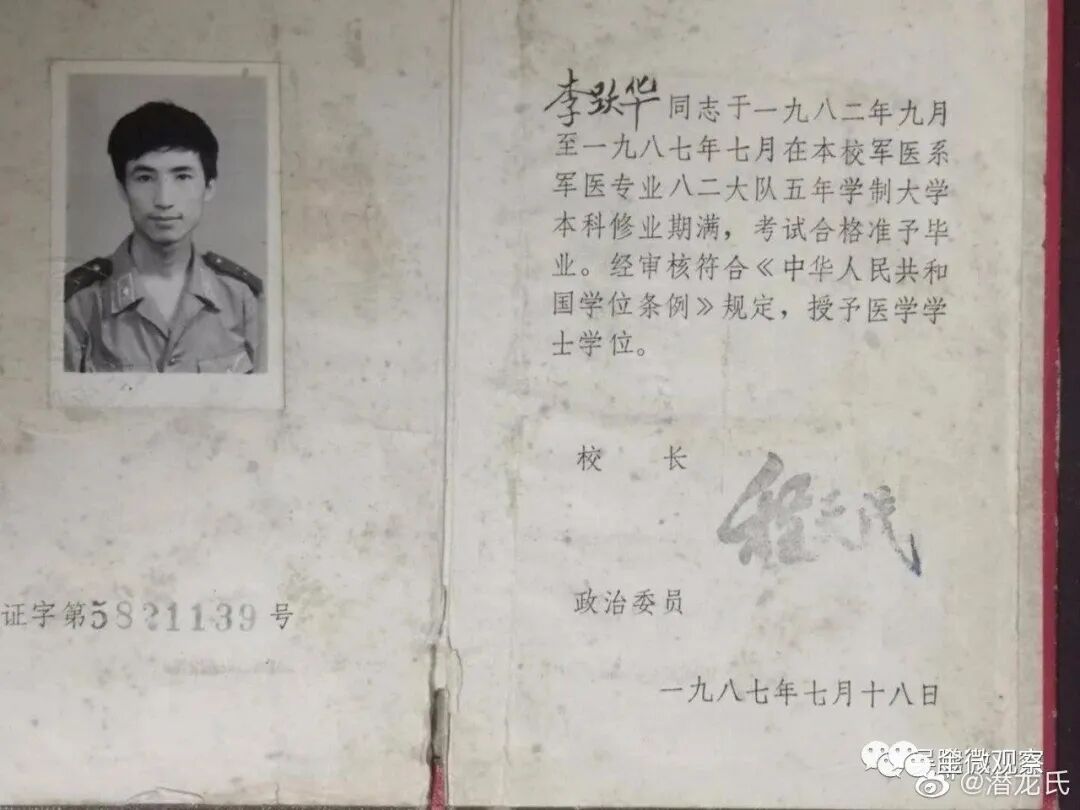 李跃华同志于一九八二年九月
至一九八七年七月在本校军医系
军医专业八二大队五年学制大学
本科修业期满，考试合格准予毕
业。经审核符合《中华人民共和
国学位条例》规定，授予医学学
士学位。
校 长
程天民
政治委员
证字第5821139号
一九八七年七月十八日
微观察
@潜龙氏